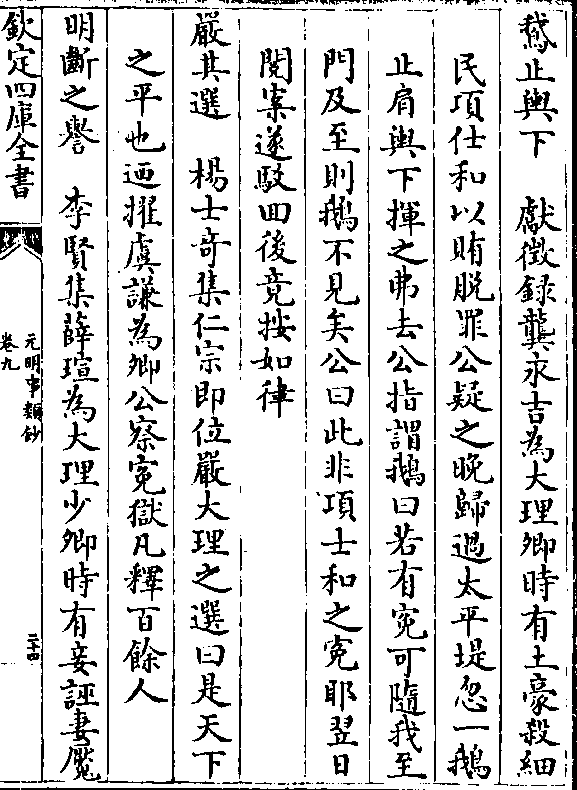 鵞止輿下　獻徵録龔永吉為大理卿時有土豪殺細
民項仕和以賄脱罪公疑之晚歸過太平堤忽一鵝
止肩輿下揮之弗去公指謂鵝曰若有寃可隨我至
門及至則鵝不見矣公曰此非項士和之寃耶翌日
閲案遂駁回後竟按如律
嚴其選　楊士奇集仁宗即位嚴大理之選曰是天下
之平也迺擢虞謙為卿公察寃獄凡釋百餘人
明斷之譽　李賢集薛瑄為大理少卿時有妾誣妻魘
欽定四庫全書
元明事類鈔
卷九
二十四